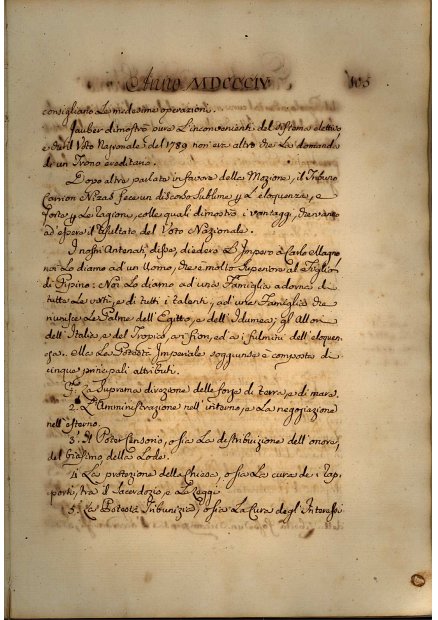 Anno MDCCCIV 105
consigliano le medesime operazioni.
Jauber dimostrò pure l'inconvenienti del sistema elettivo,
e che il Voto Nazionale del 1789 non era altro che la domanda
di un Trono ereditario.
Dopo altre parlate in favore delle Mozione, il Tribuno
Carrion Nizas fece un discorso sublime p. l'eloquenza, e
forte p. le ragione, colle quali dimostrò i vantaggi, che
ad essere il resultato del Voto Nazionale.
I nostri Antenati, disse, diedero l'Impero a Carlo Magno
noi lo diamo ad un Uomo, che è molto superiore al Figlio
di Pipino: Noi lo diamo ad una Famiglia adorna di
tutte le virtù, e di tutti i talenti, ad una Famiglia che
riunisce le Palme dell'Egitto, e dell'Idumea; gli allori
dell'Italia, e del Tropico, ai fiori, ed ai fulmini dell'eloquen-
za. Ella la Potestà Imperiale soggiunse è composta di
cinque principali attributi.
1. La Suprema direzione delle forze di terra, e di mare.
2. L'Amministrazione nell'interno, e la negoziazione
nell'esterno.
3. Il Poter Censorio, o sia la distribuzione dell'onore,
del Biasimo, della Lode.
4. La protezione della Chiesa, o sia la cura de i rap-
porti, tra il Sacerdozio, e le Leggi.
5. La Potestà Tribunizia, o sia la Cura degl'Interessi